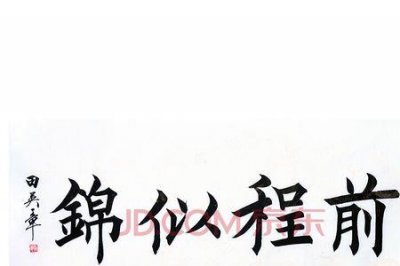 前程似錦
田英章
JD.COM 京东